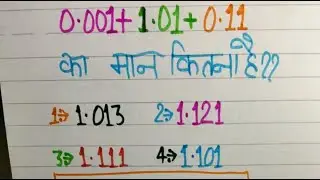 0.001+ 1.01+ 0.11
का मान कितना है??
1⇒ 1.013 2⇒ 1.121
3⇒ 1.111 4⇒ 1.101